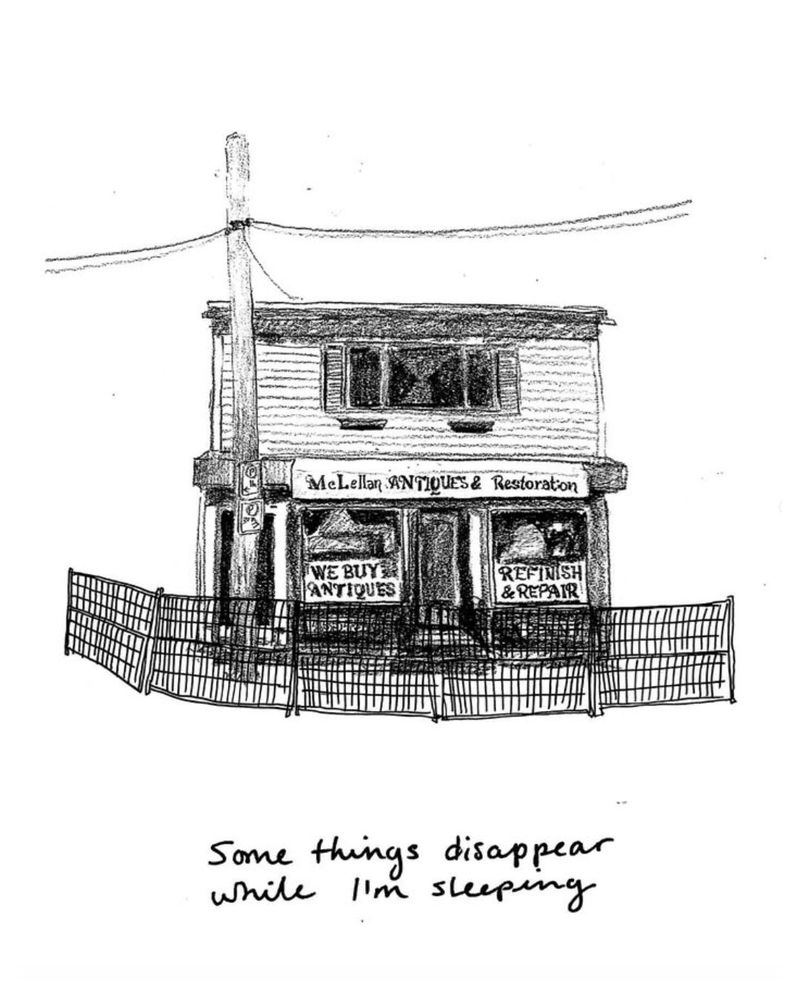 McLellan ANTIQUES & Restoration
WE BUY
ANTIQUES
REFINISH
& REPAIR
Some things disappear
while I'm sleeping